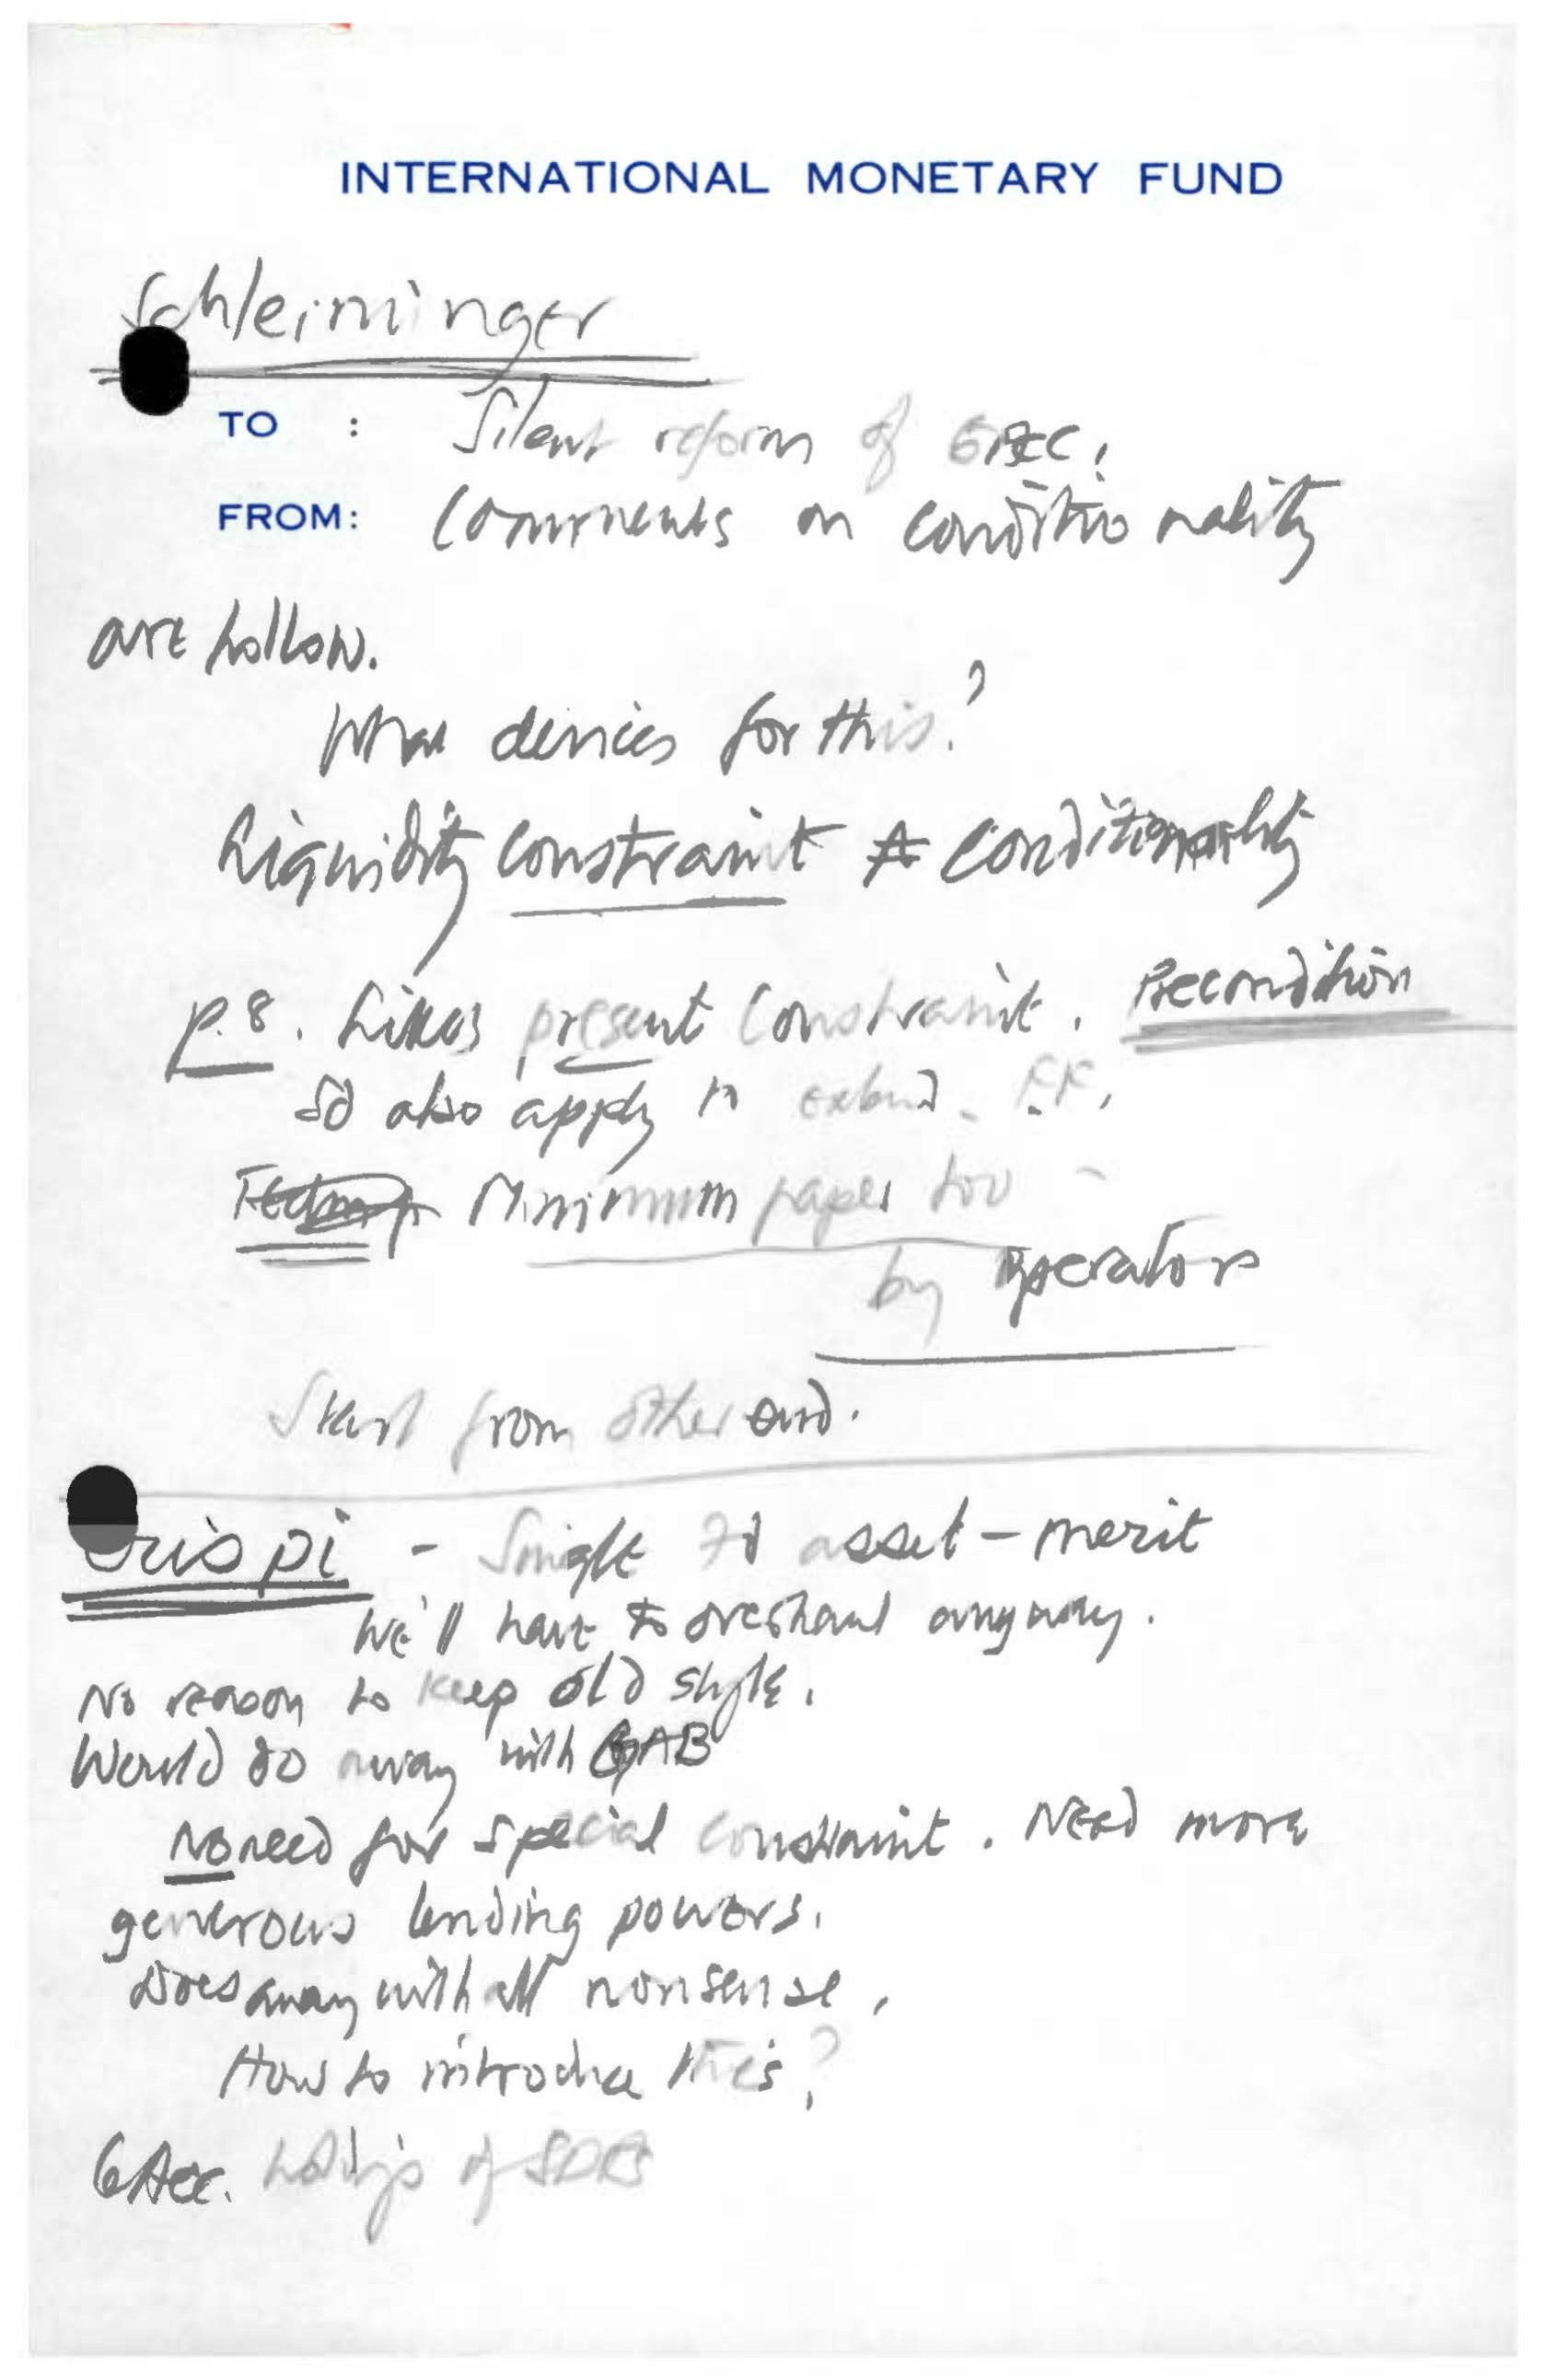 INTERNATIONAL MONETARY FUND
Schleiminger
TO : Silent reform of
FROM: Comments on conditionality
are hollow.
What devices for this?
Liquidity constraint ≠ conditionality
p.8. Likes present constraint. Precondition
So also apply to extend. F.F.
Minimum paper too -
by operators
Start from other end.
Crispi - Single asset - merit
We'll have to overhaul anyway.
No reason to keep old style.
Would do away with GAB
No need for special constraint. Need more
generous lending powers.
Does away with all nonsense.
How to introduce this?
G Acc. hold'gs of SDRs